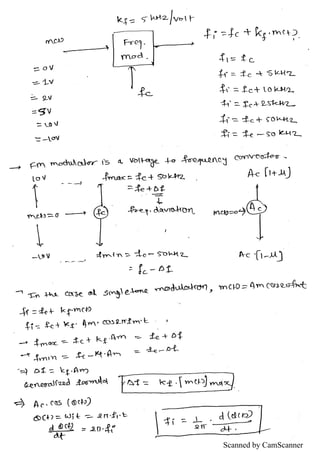 kf = 5 kHz/volt
m(t) → Freq. mod. → fi = fc + kf.m(t).
fc
= 0V fi = fc
= 1V fi = fc + 5kHz
= 2V fi = fc + 10kHz
= 5V fi = fc + 25kHz
= 10V fi = fc + 50kHz
= -10V fi = fc - 50 kHz
→ Fm modulator is a voltage to frequency converter.
10V fmax = fc + 50kHz Ac [1+μ]
= fc + Δf
m(t)=0 fc freq. deviation m(t)=0 Ac
-10V fmin = fc - 50kHz Ac [1-μ]
= fc - Δf
→ In the case of singletone modulation, m(t) = Am cos2πfmt
fi = fc + kf m(t)
fi = fc + kf. Am. cos2πfmt.
→ fmax = fc + kf Am = fc + Δf
→ fmin = fc - kf.Am = fc - Δf
⇒ Δf = kf.Am
Generalized formula Δf = kf.[m(t)]max
⇒ Ac. cos (θ(t))
θ(t) = wit = 2π.fi.t
d θ(t)/dt = 2π.fi fi = 1/2π . d(θ(t))/dt.
Scanned by CamScanner